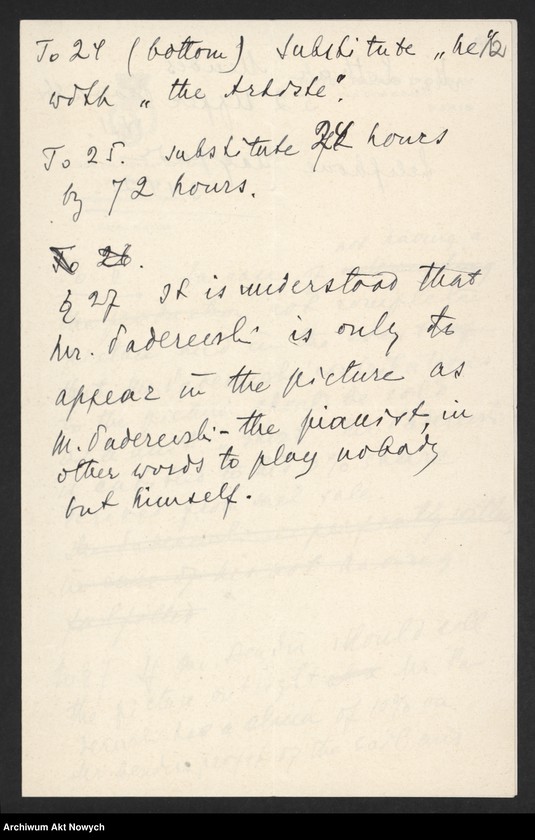 To 24 (bottom) substitute „he"
with „the Artiste".
To 25. substitute 24 hours
by 72 hours.
To 26.
§ 27 It is understood that
Mr. Paderewski is only to
appear in the picture as
M. Paderewski - the pianist, in
other words to play nobody
but himself.
Archiwum Akt Nowych